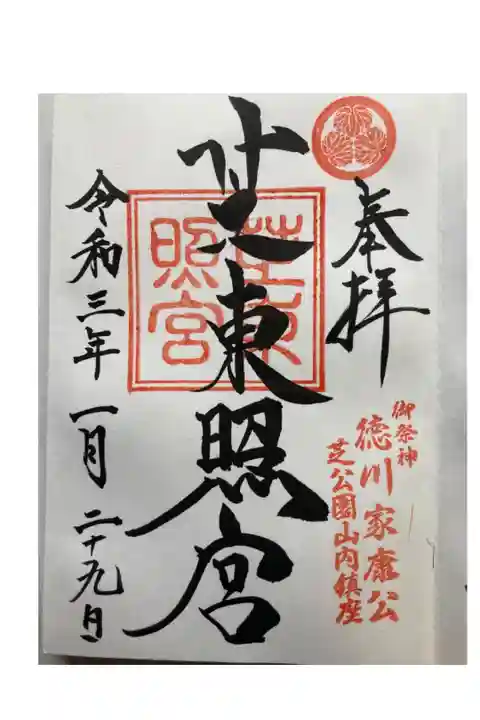 奉拝
御祭神
徳川家康公
芝公園山内鎮座
芝東照宮
芝東照宮
令和三年一月二十九日